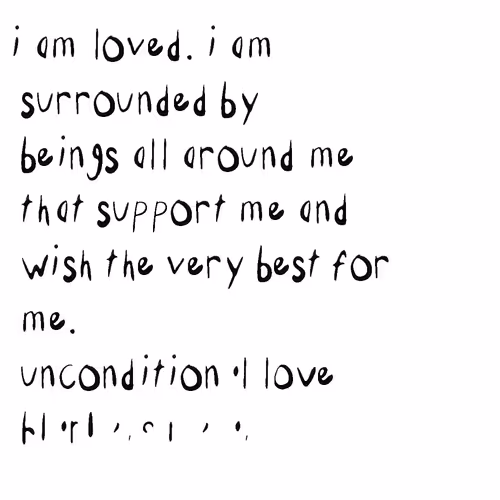 i am loved. i am
surrounded by
beings all around me
that support me and
wish the very best for
me.
love